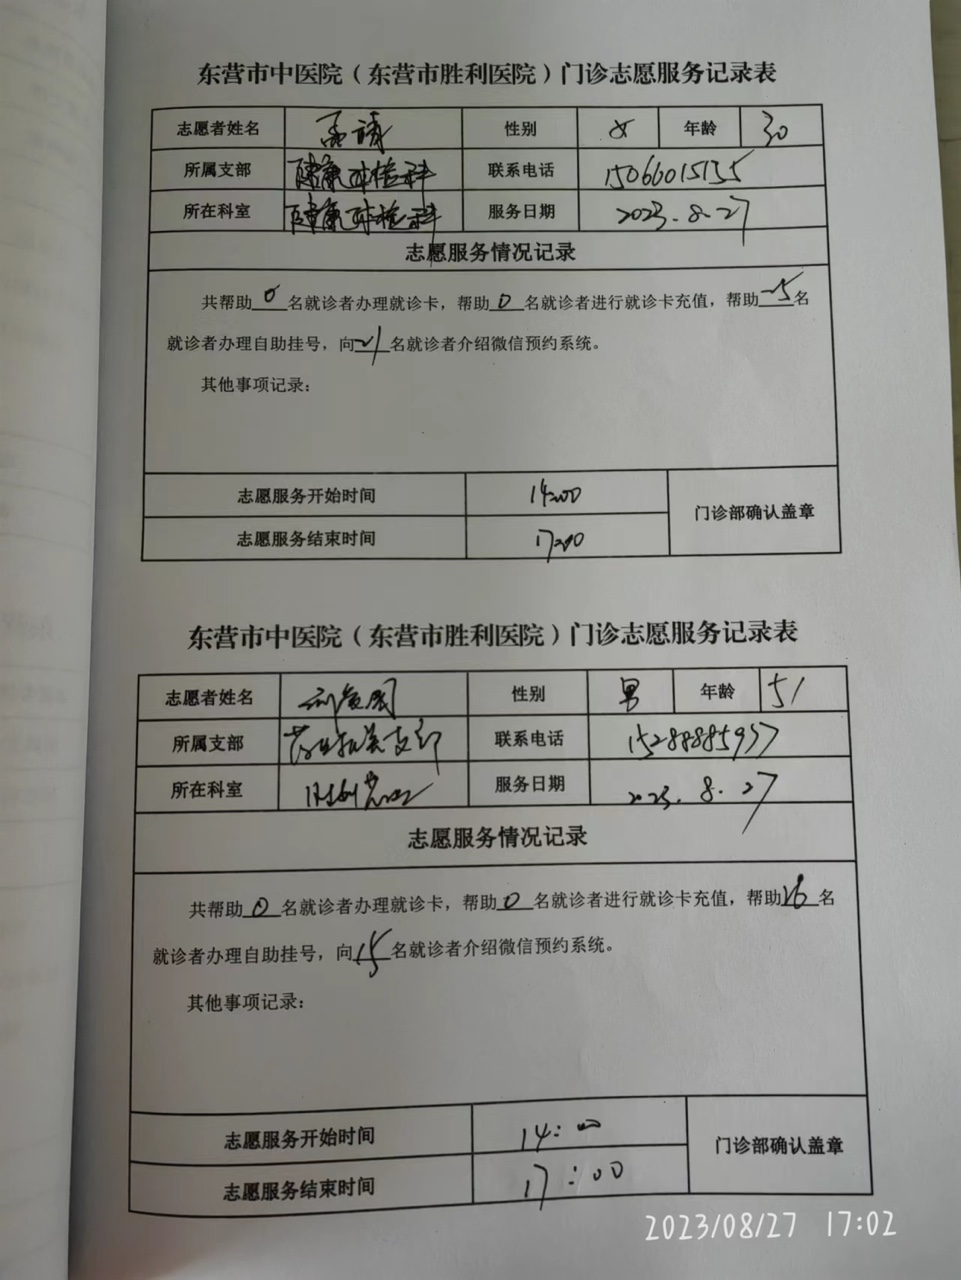 东营市中医院（东营市胜利医院）门诊志愿服务记录表
志愿者姓名 孟靖 性别 女 年龄 30
所属支部 健康体检科 联系电话 15066015135
所在科室 健康体检科 服务日期 2023.8.27
志愿服务情况记录
共帮助0名就诊者办理就诊卡，帮助0名就诊者进行就诊卡充值，帮助25名
就诊者办理自助挂号，向21名就诊者介绍微信预约系统。
其他事项记录：
志愿服务开始时间 14:00
门诊部确认盖章
志愿服务结束时间 17:00
东营市中医院（东营市胜利医院）门诊志愿服务记录表
志愿者姓名 性别 男 年龄 51
所属支部 支部 联系电话 15288885957
所在科室 服务日期 2023.8.27
志愿服务情况记录
共帮助0名就诊者办理就诊卡，帮助0名就诊者进行就诊卡充值，帮助26名
就诊者办理自助挂号，向15名就诊者介绍微信预约系统。
其他事项记录：
志愿服务开始时间 14:00
门诊部确认盖章
志愿服务结束时间 17:00
2023/08/27 17:02